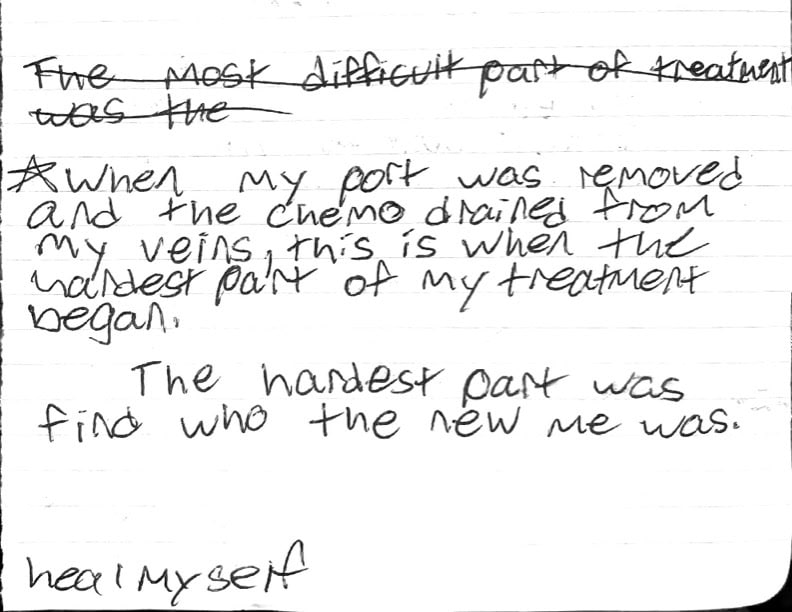 The most difficult part of treatment
was the
☆When my port was removed
and the chemo drained from
my veins, this is when the
hardest part of my treatment
began.
The hardest part was
find who the new me was.
heal myself